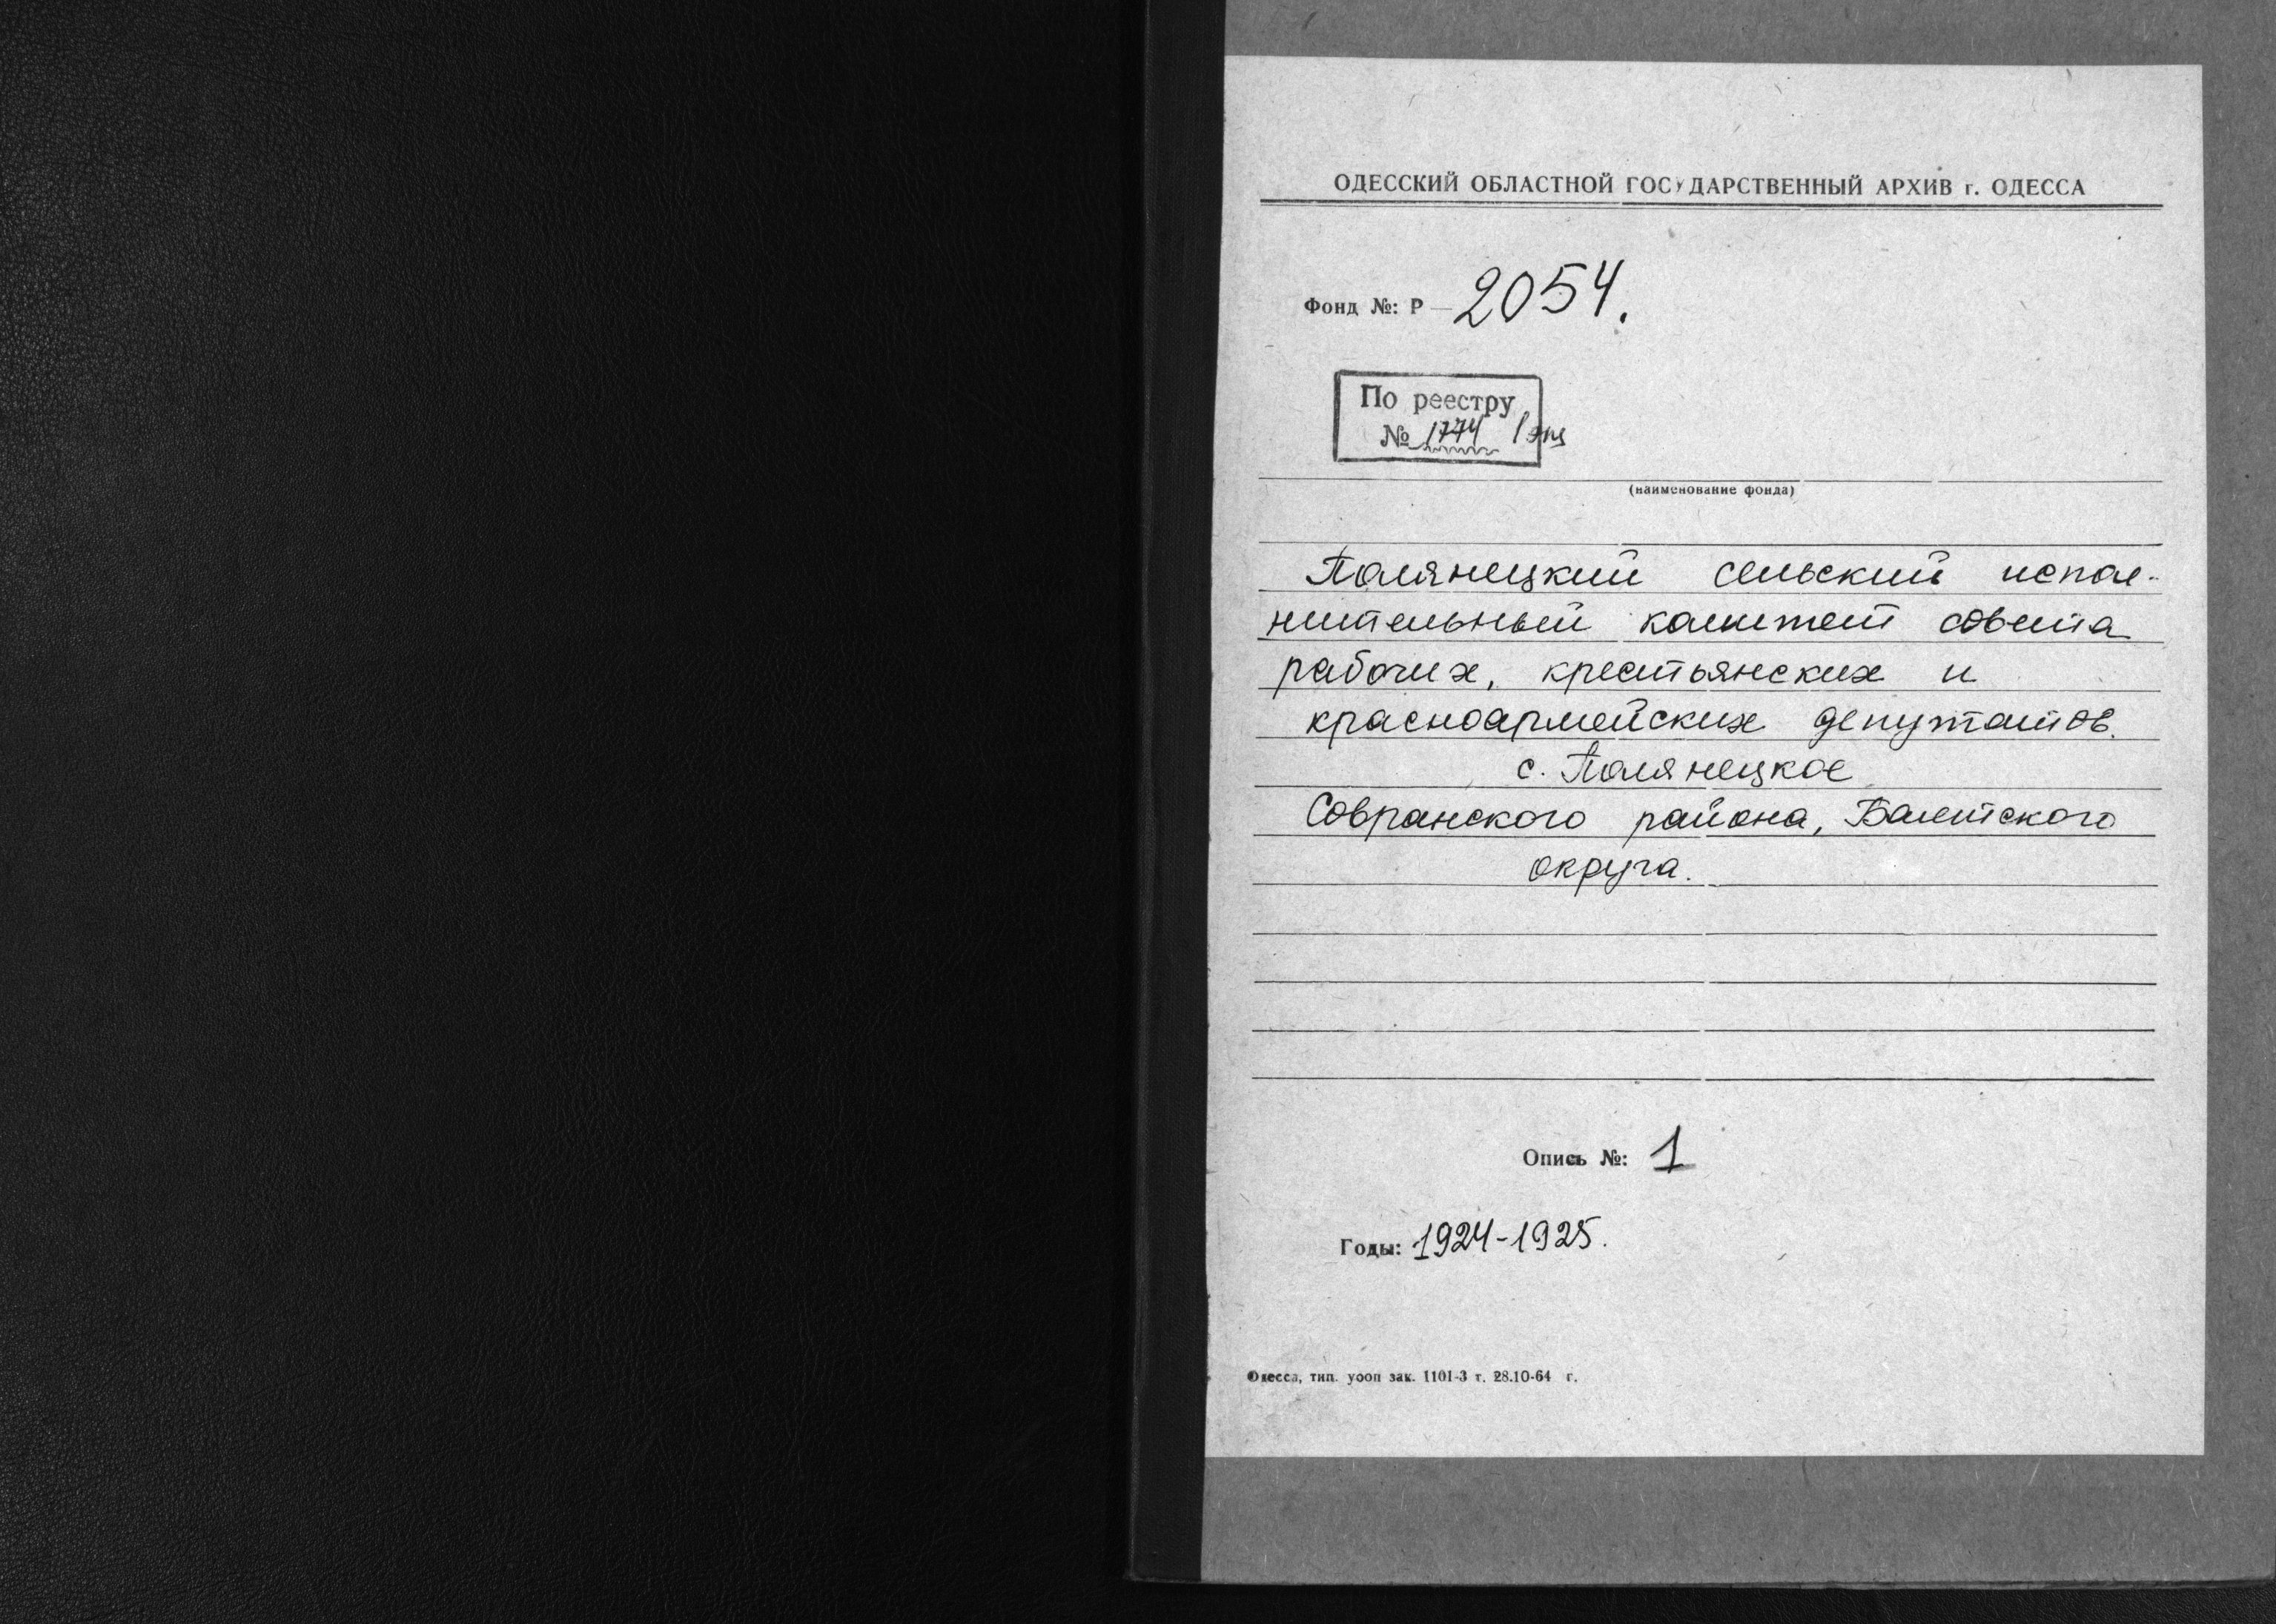 ОДЕССКИЙ ОБЛАСТНОЙ ГОСУДАРСТВЕННЫЙ АРХИВ г. ОДЕССА
Фонд №: Р — 2054.
По реестру
№ 1774 1 экз
(наименование фонда)
Полянецкий сельский испол-
нительный комитет совета
рабочих, крестьянских и
красноармейских депутатов.
с. Полянецкое
Совранского района, Балтского
округа.
Опись №: 1
Годы: 1924-1925.
Одесса, тип. уооп зак. 1101-3 т. 28.10-64 г.